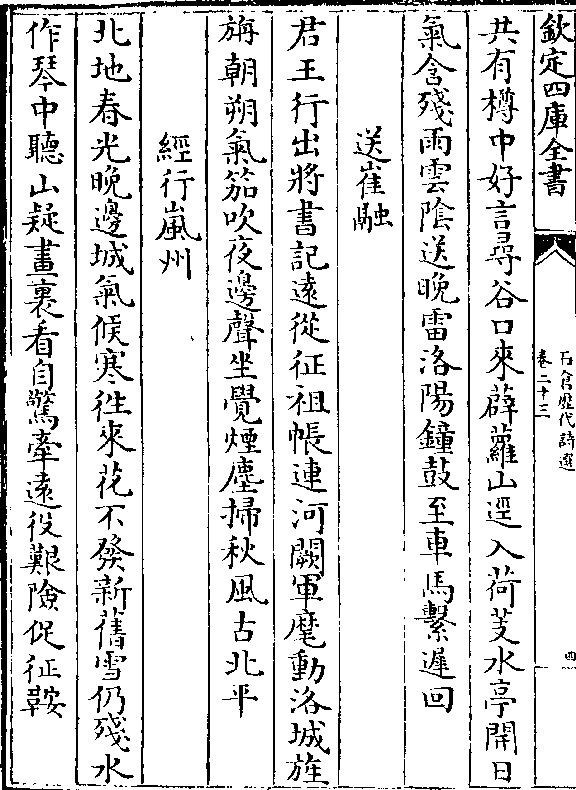 欽定四庫全書
石倉歷代詩選
卷二十三
四
共有樽中好言尋谷口來薜蘿山逕入荷芰水亭開日
氣含殘雨雲陰送晚雷洛陽鐘鼓至車馬繫遲回
送崔融
君王行出將書記遠從征祖帳連河闕軍麾動洛城旌
旃朝朔氣笳吹夜邊聲坐覺煙塵掃秋風古北平
經行嵐州
北地春光晚邊城氣候寒徃來花不發新舊雪仍殘水
作琴中聽山疑畫裏看自驚牽遠役艱險促征鞍